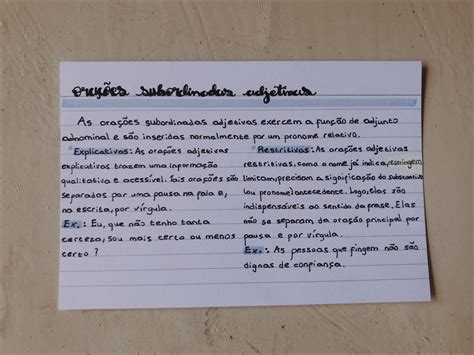 orações subordinadas adjetivas
As orações subordinadas adjetivas exercem a função de adjunto
adnominal e são inseridas normalmente por um pronome relativo.
Explicativas: As orações adjetivas
explicativas trazem uma informação
qualitativa e acessível. Tais orações são
separados por uma pausa na fala e,
na escrita, por vírgula.
Ex.: Eu, que não tenho tanta
certeza, sou mais certo ou menos
certo?
Restritivas: As orações adjetivas
restritivas, como o nome já indica, restringem,
limitam, precisam a significação do substantivo
(ou pronome) antecedence. Logo, elas são
indispensáveis ao sentido da frase. Elas
não se separam da oração principal por
pausa e por vírgula.
Ex.: As pessoas que fingem não são
dignas de confiança.